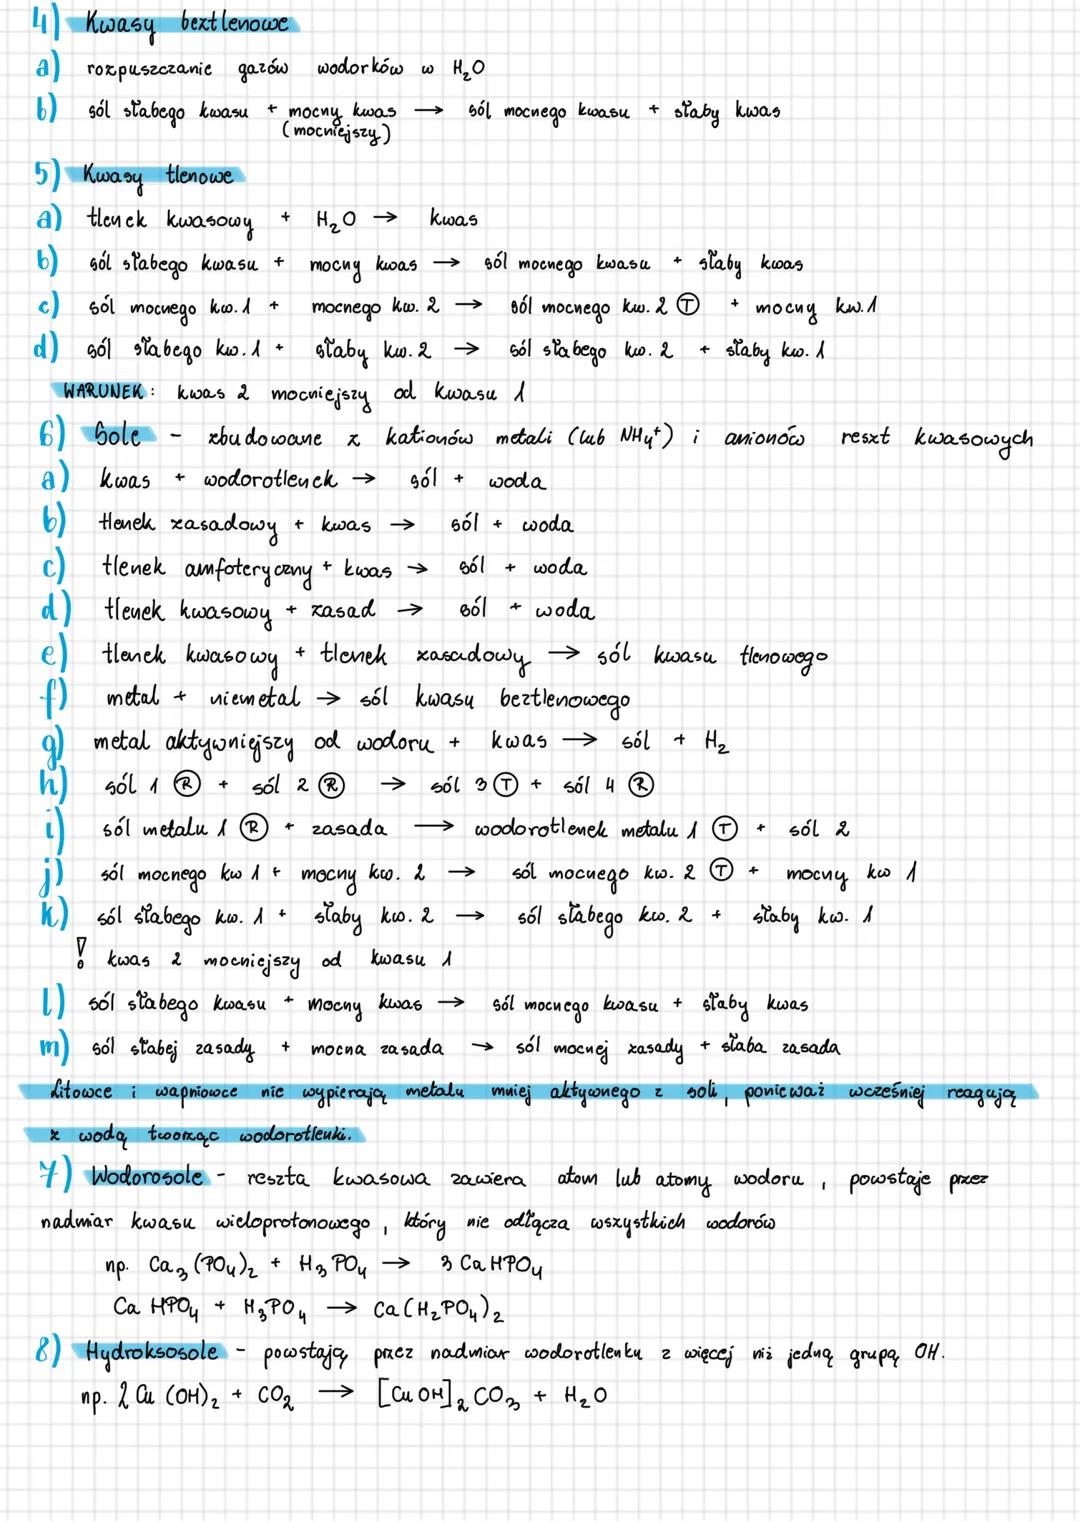 4) Kwasy beztlenowe
a) rozpuszczanie gazów wodorków w H₂O
b) sól słabego kwasu + mocny kwas → sól mocnego kwasu + słaby kwas
(mocniejszy)
5) Kwasy tlenowe
a) tlenek kwasowy + H₂O → kwas
b) sól słabego kwasu + mocny kwas → sól mocnego kwasu + słaby kwas
c) sól mocnego kw. 1 + mocnego kw. 2 → sól mocnego kw. 2 Ⓣ + mocny kw. 1
d) sól słabego kw. 1 + słaby kw. 2 → sól słabego kw. 2 + słaby kw. 1
WARUNEK: kwas 2 mocniejszy od kwasu 1
6) Sole - zbudowane z kationów metali (lub NH₄⁺) i anionów reszt kwasowych
a) kwas + wodorotlenek → sól + woda
b) tlenek zasadowy + kwas → sól + woda
c) tlenek amfoteryczny + kwas → sól + woda
d) tlenek kwasowy + zasad → sól + woda
e) tlenek kwasowy + tlenek zasadowy → sól kwasu tlenowego
f) metal + niemetal → sól kwasu beztlenowego
g) metal aktywniejszy od wodoru + kwas → sól + H₂
h) sól 1 Ⓡ + sól 2 Ⓡ → sól 3 Ⓣ + sól 4 Ⓡ
i) sól metalu 1 Ⓡ + zasada → wodorotlenek metalu 1 Ⓣ + sól 2
j) sól mocnego kw 1 + mocny kw. 2 → sól mocnego kw. 2 Ⓣ + mocny kw 1
k) sól słabego kw. 1 + słaby kw. 2 → sól słabego kw. 2 + słaby kw. 1
! kwas 2 mocniejszy od kwasu 1
l) sól słabego kwasu + mocny kwas → sól mocnego kwasu + słaby kwas
m) sól słabej zasady + mocna zasada → sól mocnej zasady + słaba zasada
Litowce i wapniowce nie wypierają metalu mniej aktywnego z soli, ponieważ wcześniej reagują
z wodą tworząc wodorotlenki.
7) Wodorosole - reszta kwasowa zawiera atom lub atomy wodoru, powstaje przez
nadmiar kwasu wieloprotonowego, który nie odłącza wszystkich wodorów
np. Ca₃(PO₄)₂ + H₃PO₄ → 3 CaHPO₄
CaHPO₄ + H₃PO₄ → Ca(H₂PO₄)₂
8) Hydroksosole - powstają przez nadmiar wodorotlenku z więcej niż jedną grupą OH.
np. 2 Cu(OH)₂ + CO₂ → [CuOH]₂CO₃ + H₂O